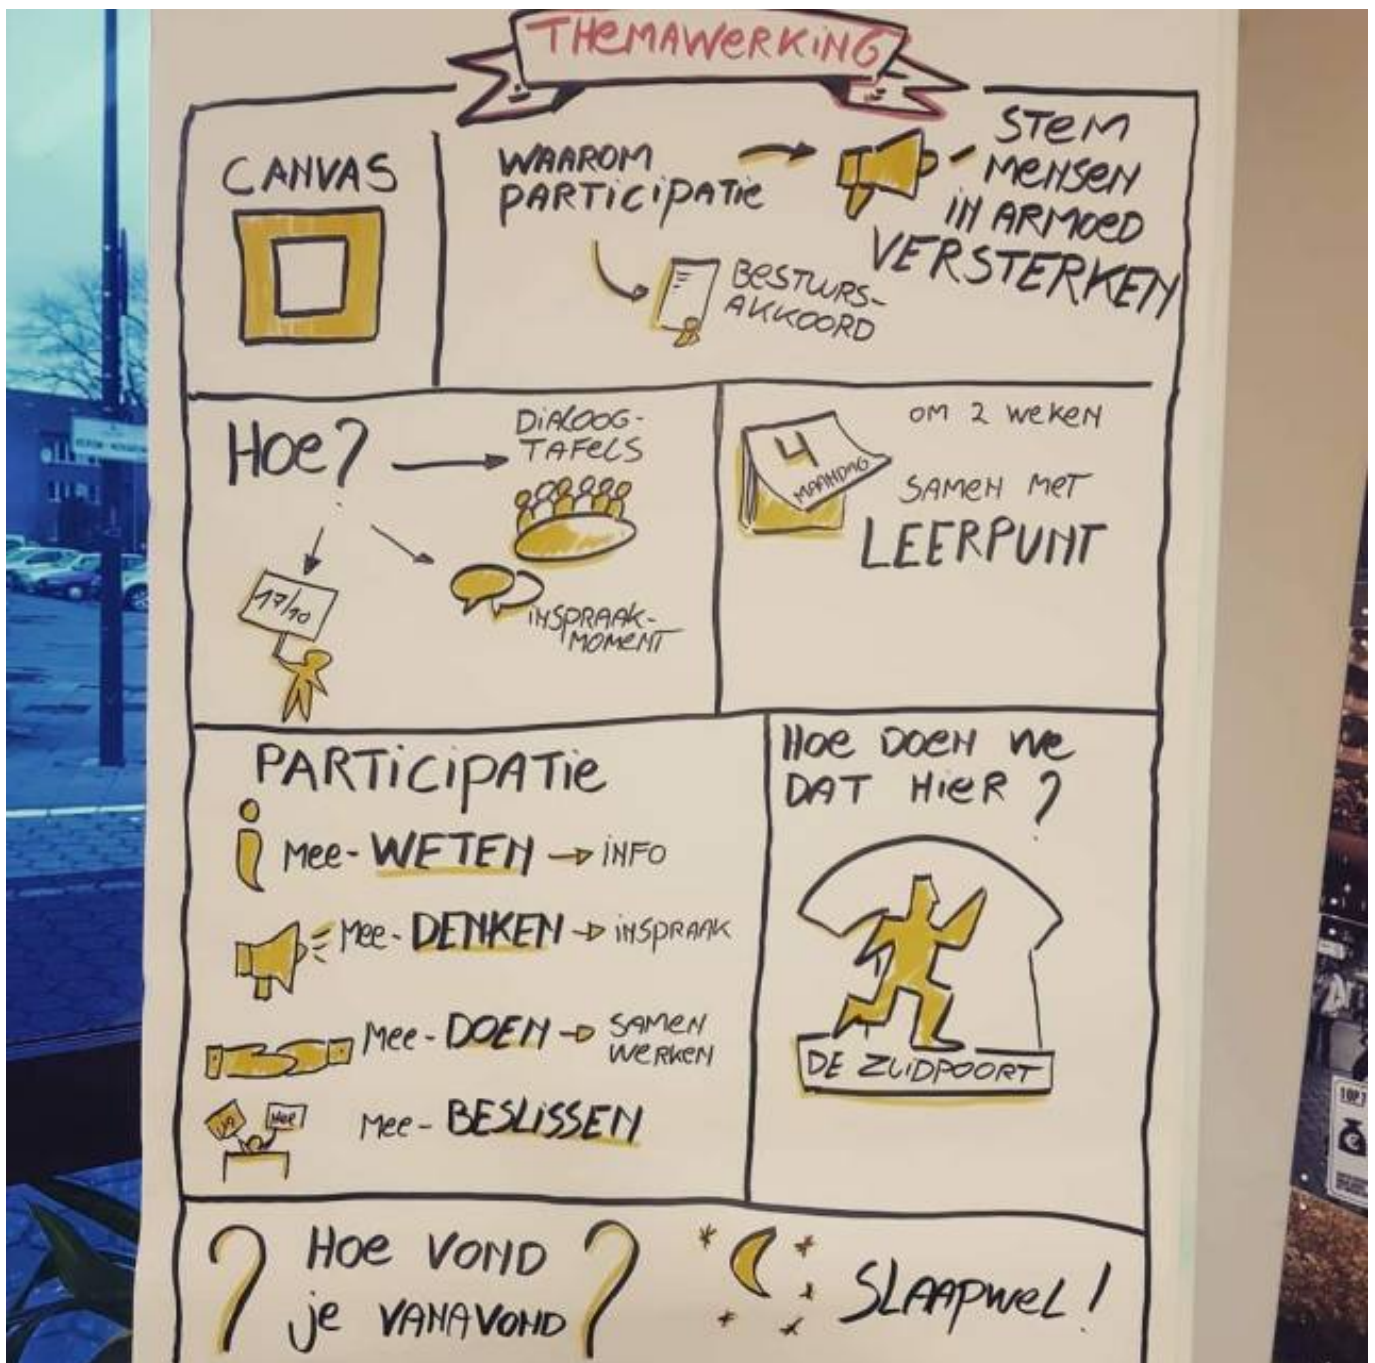 THEMAWERKING
CANVAS
WAAROM
PARTICIPATIE
STEM
MENSEN
IN ARMOED
VERSTERKEN
BESTUURS-
AKKOORD
HOE?
DIALOOG-
TAFELS
17/10
INSPRAAK-
MOMENT
4
MAANDAG
OM 2 WEKEN
SAMEN MET
LEERPUNT
PARTICIPATIE
i MEE-WETEN → INFO
MEE-DENKEN → INSPRAAK
MEE-DOEN → SAMEN
WERKEN
JA
NEE
MEE-BESLISSEN
HOE DOEN WE
DAT HIER?
DE ZUIDPOORT
? HOE VOND ?
je VANAVOND
SLAAPWEL!
1 OP 7